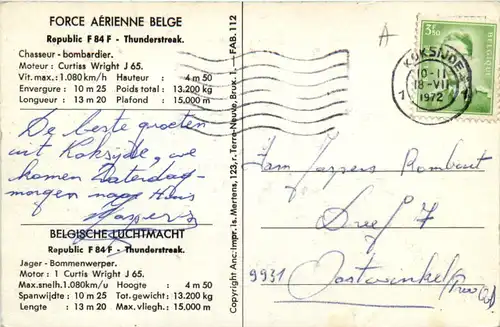 FORCE AÉRIENNE BELGE
Republic F 84 F - Thunderstreak.
Chasseur - bombardier.
Moteur : Curtiss Wright J 65.
Vit. max. : 1.080 km/h Hauteur : 4 m 50
Envergure : 10 m 25 Poids total : 13.200 kg
Longueur : 13 m 20 Plafond : 15.000 m
De beste groeten
uit Koksijde, we
komen Zaterdag-
morgen naar Huis
Jaspers
BELGISCHE LUCHTMACHT
Republic F 84 F - Thunderstreak.
Jager - Bommenwerper.
Motor : 1 Curtis Wright J 65.
Max. snelh. 1.080 km/u Hoogte : 4 m 50
Spanwijdte : 10 m 25 Tot. gewicht : 13.200 kg
Lengte : 13 m 20 Max. vliegh. : 15.000 m
Copyright Anc. Impr. Is. Mertens, 123, r. Terre-Neuve, Brux. 1. — FAB. 112
A
3F50
KOKSIJDE
10-11
18-VII
1972
1 1
Fam Jaspers Rombout
Dreef 7
9931 Oostwinkel